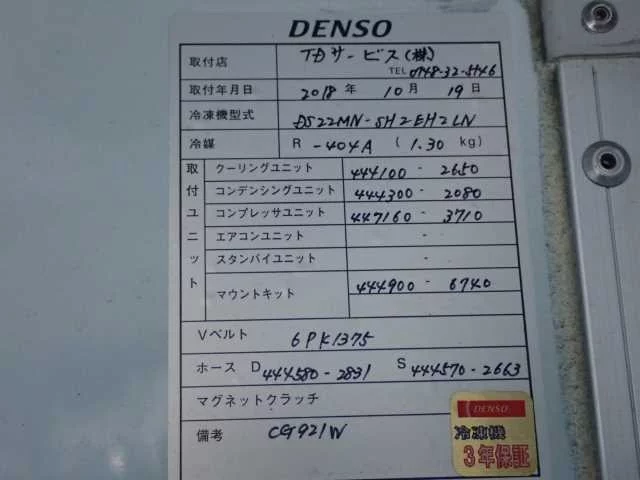 DENSO
取付店 TDサービス(株)
TEL 0748-32-5146
取付年月日 2018 年 10 月 19 日
冷凍機型式 DS22MN-SH2EH2LN
冷媒 R -404A ( 1.30 kg)
取付ユニット
クーリングユニット 444100 - 2650
コンデンシングユニット 444300 - 2080
コンプレッサユニット 447160 - 3710
エアコンユニット -
スタンバイユニット -
マウントキット 444900 - 6740
Vベルト 6PK1375
ホース D 444580-2831 S 444570-2663
マグネットクラッチ
備考 CG921W
DENSO
冷凍機
3年保証